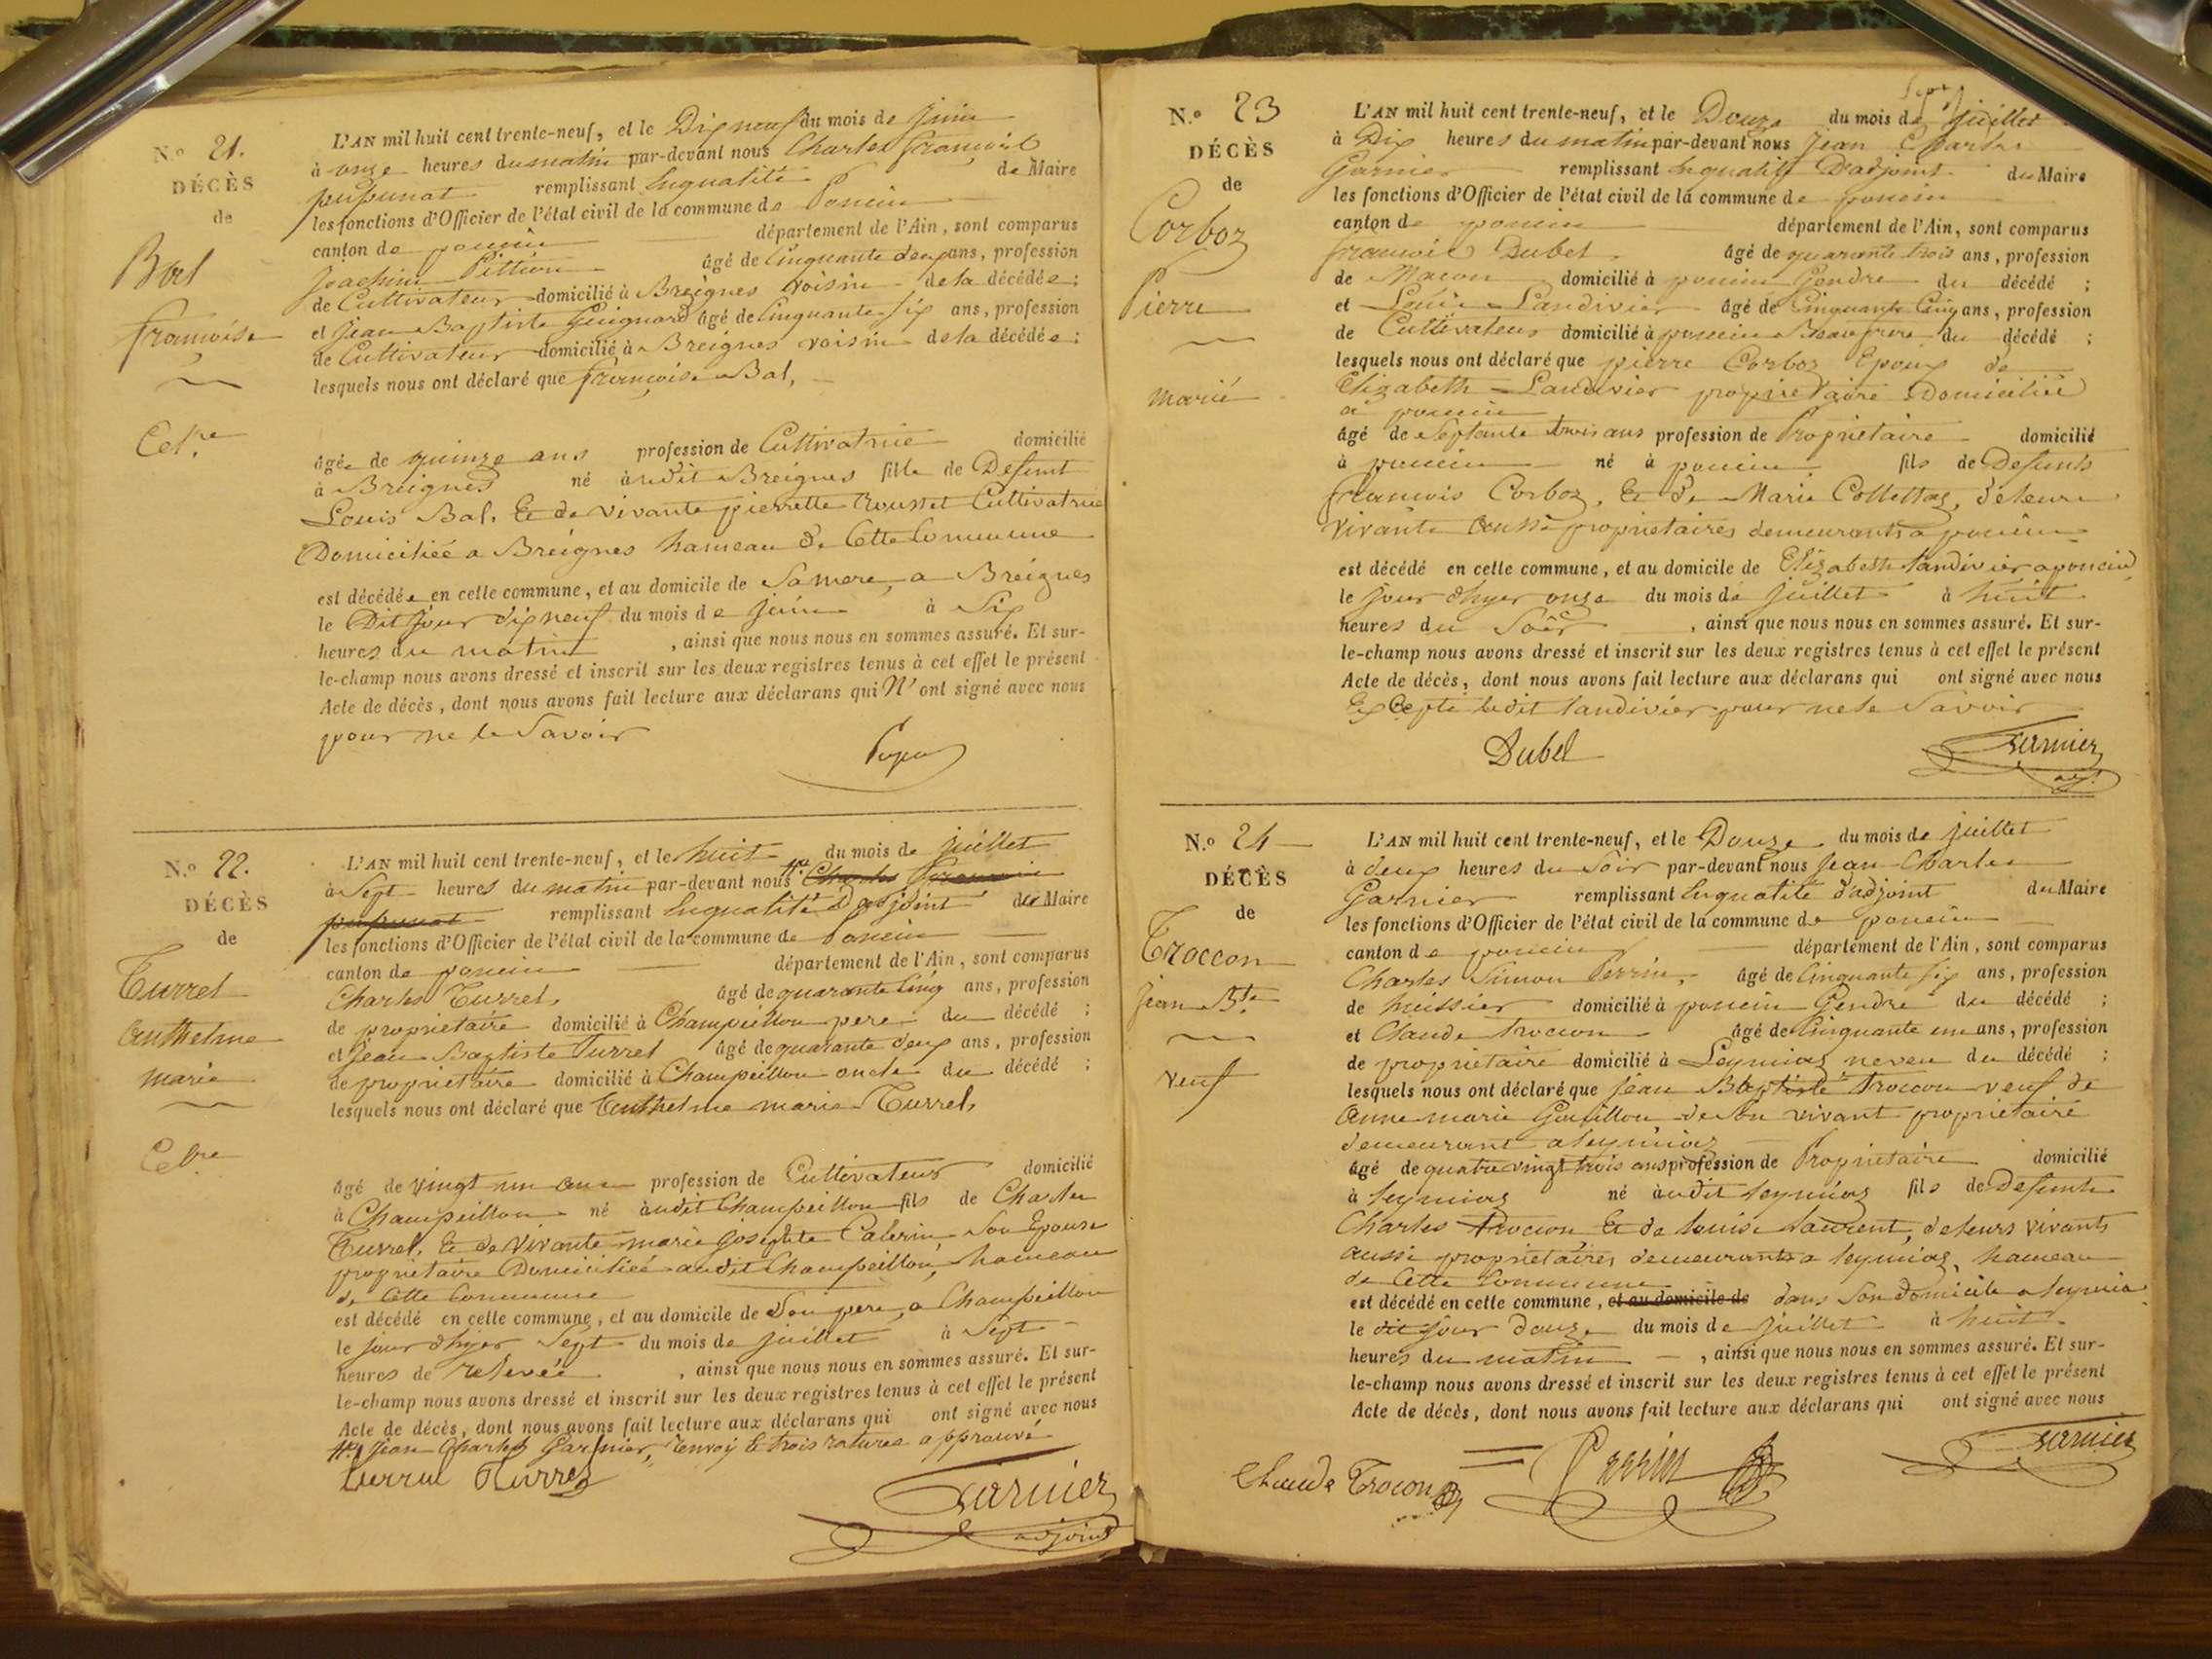 N.º 21.
DÉCÈS
de
Bal
françoise
Cel.re
L'AN mil huit cent trente-neuf, et le Dix neuf du mois de Juin
à onze heures du matin par-devant nous Charles françois
pupunat remplissant Enqualité de Maire
les fonctions d'Officier de l'état civil de la commune de Poncin
canton de poncin département de l'Ain, sont comparus
Joachim Pittion âgé de Cinquante deux ans, profession
de Cultivateur domicilié à Breignes voisin de la décédée ;
et Jean Baptiste Guignard âgé de Cinquante six ans, profession
de Cultivateur domicilié à Breignes voisin de la décédée ;
lesquels nous ont déclaré que françoise Bal,
âgée de quinze ans profession de Cultivatrice domicilié
à Breignes né audit Breignes fille de Defunt
Louis Bal. Et de vivante pierrette Rousset Cultivatrice
Domiciliée a Breignes hameau de Cette Commune
est décédée en cette commune, et au domicile de Samere, a Breignes
le Dit jour dix neuf du mois de juin à Six
heures du matin , ainsi que nous nous en sommes assuré. Et sur-
le-champ nous avons dressé et inscrit sur les deux registres tenus à cet effet le présent
Acte de décès, dont nous avons fait lecture aux déclarans qui N' ont signé avec nous
pour ne le Savoir
N.º 22.
DÉCÈS
de
Turrel
Anthelme
marie
Cel.re
L'AN mil huit cent trente-neuf, et le huit du mois de juillet
à Sept heures du matin par-devant nous Charles François
pupunat remplissant Enqualité D'adjoint du Maire
les fonctions d'Officier de l'état civil de la commune de Poncin
canton de poncin département de l'Ain, sont comparus
Charles Turrel, âgé de quarante cinq ans, profession
de propriétaire domicilié à Champeillon pere du décédé ;
et Jean Baptiste Turrel âgé de quarante deux ans, profession
de propriétaire domicilié à Champeillon oncle du décédé ;
lesquels nous ont déclaré que Anthelme marie Turrel,
âgé de vingt un ans profession de Cultivateur domicilié
à Champeillon né audit Champeillon fils de Charles
Turrel, Et de Vivante marie josephte Calerin Son Epouse
propriétaire Domiciliée audit Champeillon, hameau
de Cette Commune
est décédé en cette commune, et au domicile de Son pere, a Champeillon
le jour d'hyer Sept du mois de juillet à Sept
heures de relevée , ainsi que nous nous en sommes assuré. Et sur-
le-champ nous avons dressé et inscrit sur les deux registres tenus à cet effet le présent
Acte de décès, dont nous avons fait lecture aux déclarans qui ont signé avec nous
Jean Charles Garnier, renvoy & trois ratures approuvé
Turrel
Garnier
adjoint
N.º 23
DÉCÈS
de
Corboz
Pierre
marié
L'AN mil huit cent trente-neuf, et le Douze du mois de juillet
à Dix heures du matin par-devant nous Jean Charles
Garnier remplissant Enqualité D'adjoint du Maire
les fonctions d'Officier de l'état civil de la commune de poncin
canton de poncin département de l'Ain, sont comparus
françois Dubel. âgé de quarante trois ans, profession
de Maçon domicilié à poncin Gendre du décédé ;
et Louis Landivier âgé de Cinquante Cinq ans, profession
de Cultivateur domicilié à poncin Beaufrere du décédé ;
lesquels nous ont déclaré que pierre Corboz Epoux de
Elizabeth Landivier propriétaire Domicilié
a poncin
âgé de Septante trois ans profession de Propriétaire domicilié
à poncin né à poncin fils de Defunts
françois Corboz, Et de Marie Collettaz, de leurs
vivants aussi propriétaires demeurants a poncin
est décédé en cette commune, et au domicile de Elizabeth landivier a poncin
le jour d'hyer onze du mois de juillet à huit
heures du Soir , ainsi que nous nous en sommes assuré. Et sur-
le-champ nous avons dressé et inscrit sur les deux registres tenus à cet effet le présent
Acte de décès, dont nous avons fait lecture aux déclarans qui ont signé avec nous
Excepté ledit landivier pour ne le Savoir
Dubel
Garnier
adj.
N.º 24
DÉCÈS
de
Troccon
jean B.te
veuf
L'AN mil huit cent trente-neuf, et le Douze du mois de juillet
à deux heures du Soir par-devant nous Jean Charles
Garnier remplissant Enqualité d'adjoint du Maire
les fonctions d'Officier de l'état civil de la commune de poncin
canton de poncin département de l'Ain, sont comparus
Charles Simon Perrin, âgé de Cinquante six ans, profession
de huissier domicilié à poncin Gendre du décédé ;
et Claude trocon âgé de Cinquante un ans, profession
de propriétaire domicilié à Leymiaz neveu du décédé ;
lesquels nous ont déclaré que jean Baptiste trocon veuf de
Anne marie Goujllon de Son vivant propriétaire
demeurant a leymiaz
âgé de quatre vingt trois ans profession de Propriétaire domicilié
à leymiaz né audit leymiaz fils de Defunts
Charles trocon Et de louise laurent, de leurs vivants
aussi propriétaires demeurants a leymiaz, hameau
de Cette Commune
est décédé en cette commune, et au domicile de dans Son domicile a leymia
le dit jour douze du mois de juillet à huit
heures du matin , ainsi que nous nous en sommes assuré. Et sur-
le-champ nous avons dressé et inscrit sur les deux registres tenus à cet effet le présent
Acte de décès, dont nous avons fait lecture aux déclarans qui ont signé avec nous
Claude Trocon Perrin Garnier